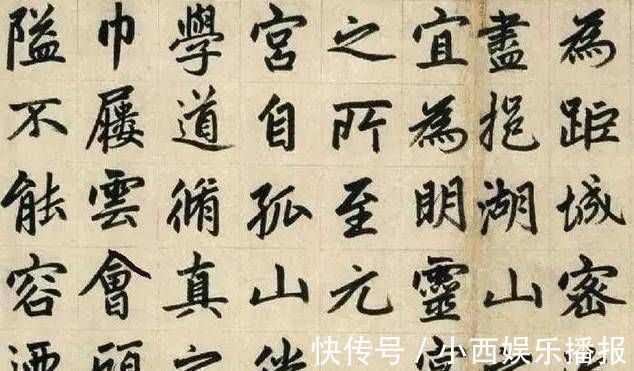 為距城密
盡挹湖山
宜為明靈
之所至元
宮自孤山
學道脩真之
巾屨雲會
隘不能容
快传号 / 小西娱乐播报